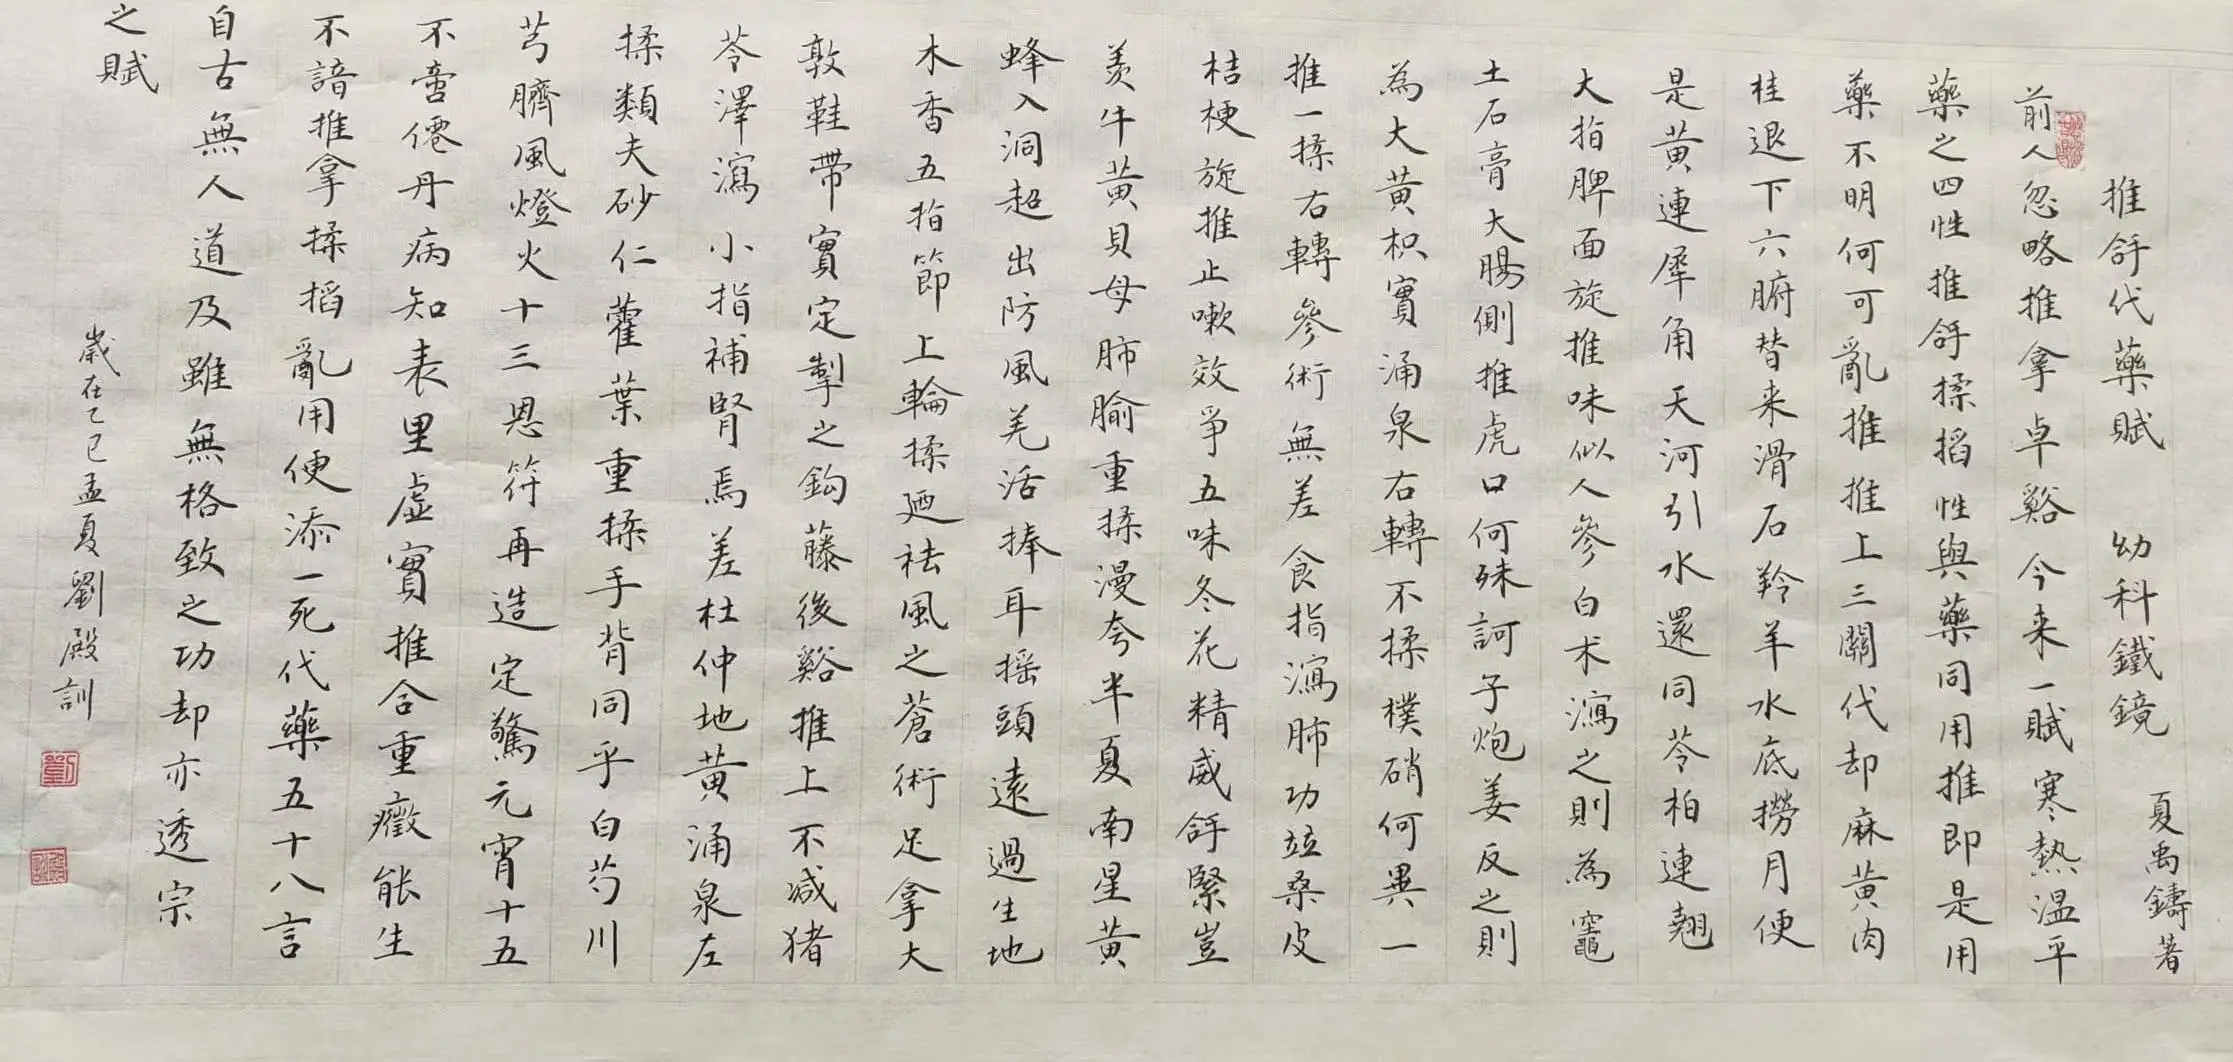 推拏代藥賦 幼科鐵鏡 夏禹鑄著
前人忽略推拿卓谿今来一賦寒熱温平
藥之四性推拏揉掐性與藥同用推即是用
藥不明何可亂推推上三關代却麻黄肉
桂退下六腑替来滑石羚羊水底撈月便
是黄連犀角天河引水還同芩柏連翹
大指脾面旋推味似人參白术瀉之則為竈
土石膏大腸側推虎口何殊訶子炮姜反之則
為大黄枳實涌泉右轉不揉樸硝何異一
推一揉右轉參術無差食指瀉肺功竝桑皮
桔梗旋推止嗽效爭五味冬花精威拏緊豈
羡牛黄貝母肺腧重揉漫夸半夏南星黄
蜂入洞超出防風羌活捧耳摇頭遠過生地
木香五指節上輪揉廼祛風之蒼術足拿大
敦鞋帶實定掣之鈎藤後谿推上不减猪
苓澤瀉小指補腎焉差杜仲地黄涌泉左
揉類夫砂仁藿葉重揉手背同乎白芍川
芎臍風燈火十三恩符再造定驚元宵十五
不啻僊丹病知表里虛實推合重癥能生
不諳推拿揉掐亂用便添一死代藥五十八言
自古無人道及雖無格致之功却亦透宗
之賦
歲在乙巳孟夏劉殿訓